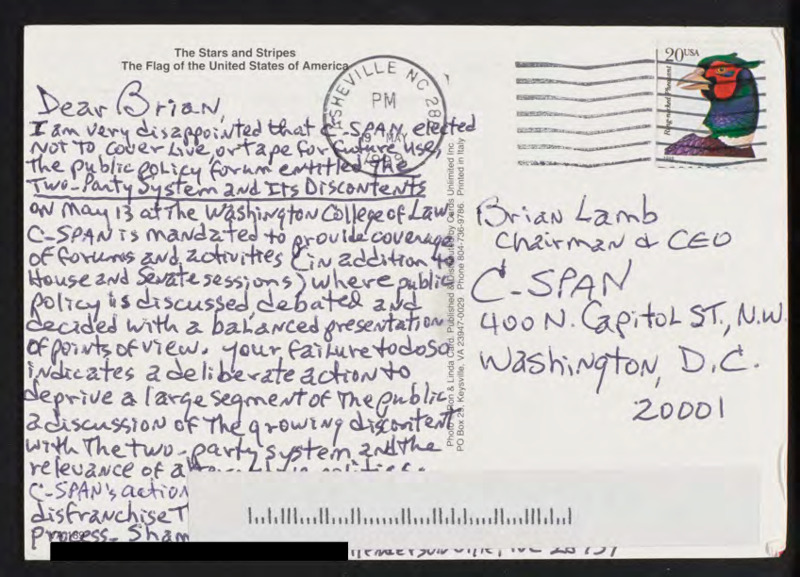 The Stars and Stripes
The Flag of the United States of America
ASHEVILLE NC 28
PM
MAY
1999
20 USA
Ring-necked Pheasant
Dear Brian,
I am very disappointed that C-SPAN, elected
Not to cover Live, or tape for future use,
The public policy forum entitled The
Two-Party System and Its Discontents
on May 13 at The Washington College of Law
C-SPAN is mandated to provide coverage
of forums and activities (in addition to
House and Senate sessions) where public
policy is discussed, debated and
decided with a balanced presentation
of points of view. your failure to do so
indicates a deliberate action to
deprive a large segment of The public
a discussion of The growing discontent
with The two-party system and The
relevance of
C-SPAN's action
disfranchise
process. Sham
Photo: Ron & Linda Card. Published & Distributed by Cards Unlimited Inc
PO Box 29, Keysville, VA 23947-0029. Phone 804-736-9786. Printed in Italy
Brian Lamb
Chairman & CEO
C-SPAN
400 N. Capitol ST., N.W.
Washington, D.C.
20001